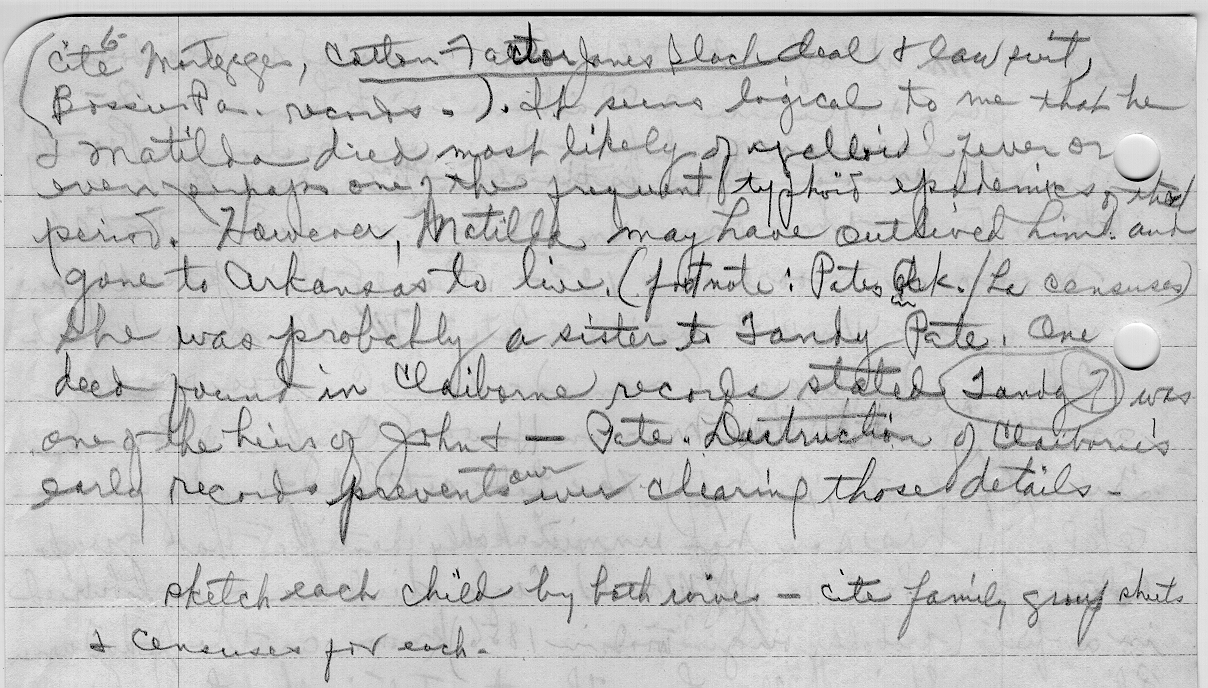 (cite Mortgages, Cotton Factor Jones Slack deal & lawsuit,
Bossier Pa. records.). It seems logical to me that he
& Matilda died most likely of yellow fever or
even perhaps one of the frequent typhoid epidemics of that
period. However, Matilda may have outlived him and
gone to Arkansas to live. (footnote: Pates in Ark./La censuses)
She was probably a sister to Tandy Pate. One
deed found in Claiborne records stated Tandy ? was
one of the heirs of John & — Pate. Destruction of Claiborne's
early records prevents our ever clearing those details -
sketch each child by both wives - cite family group sheets
& censuses for each.